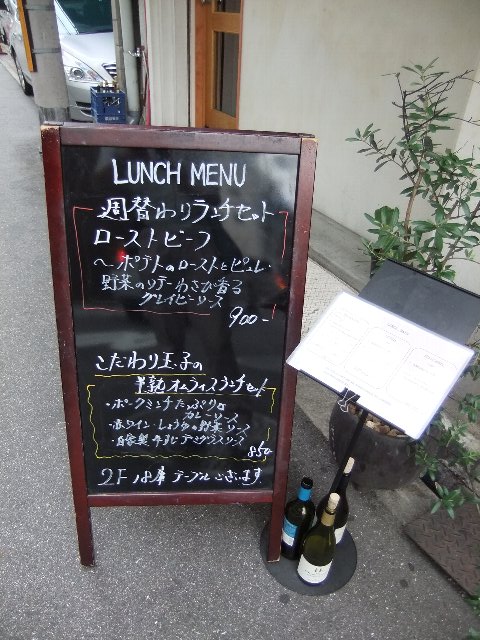 LUNCH MENU
週替わりランチセット
ローストビーフ
〜ポテトのローストとピュレ・
野菜のソテーわさび香る
グレイビーソース
900-
こだわり玉子の
半熟オムライスランチセット
・ポークミンチたっぷり
カレーソース
・赤ワイン・しょうゆの野菜ソース
・自家製牛すじデミグラスソース
850
2F テーブルございます